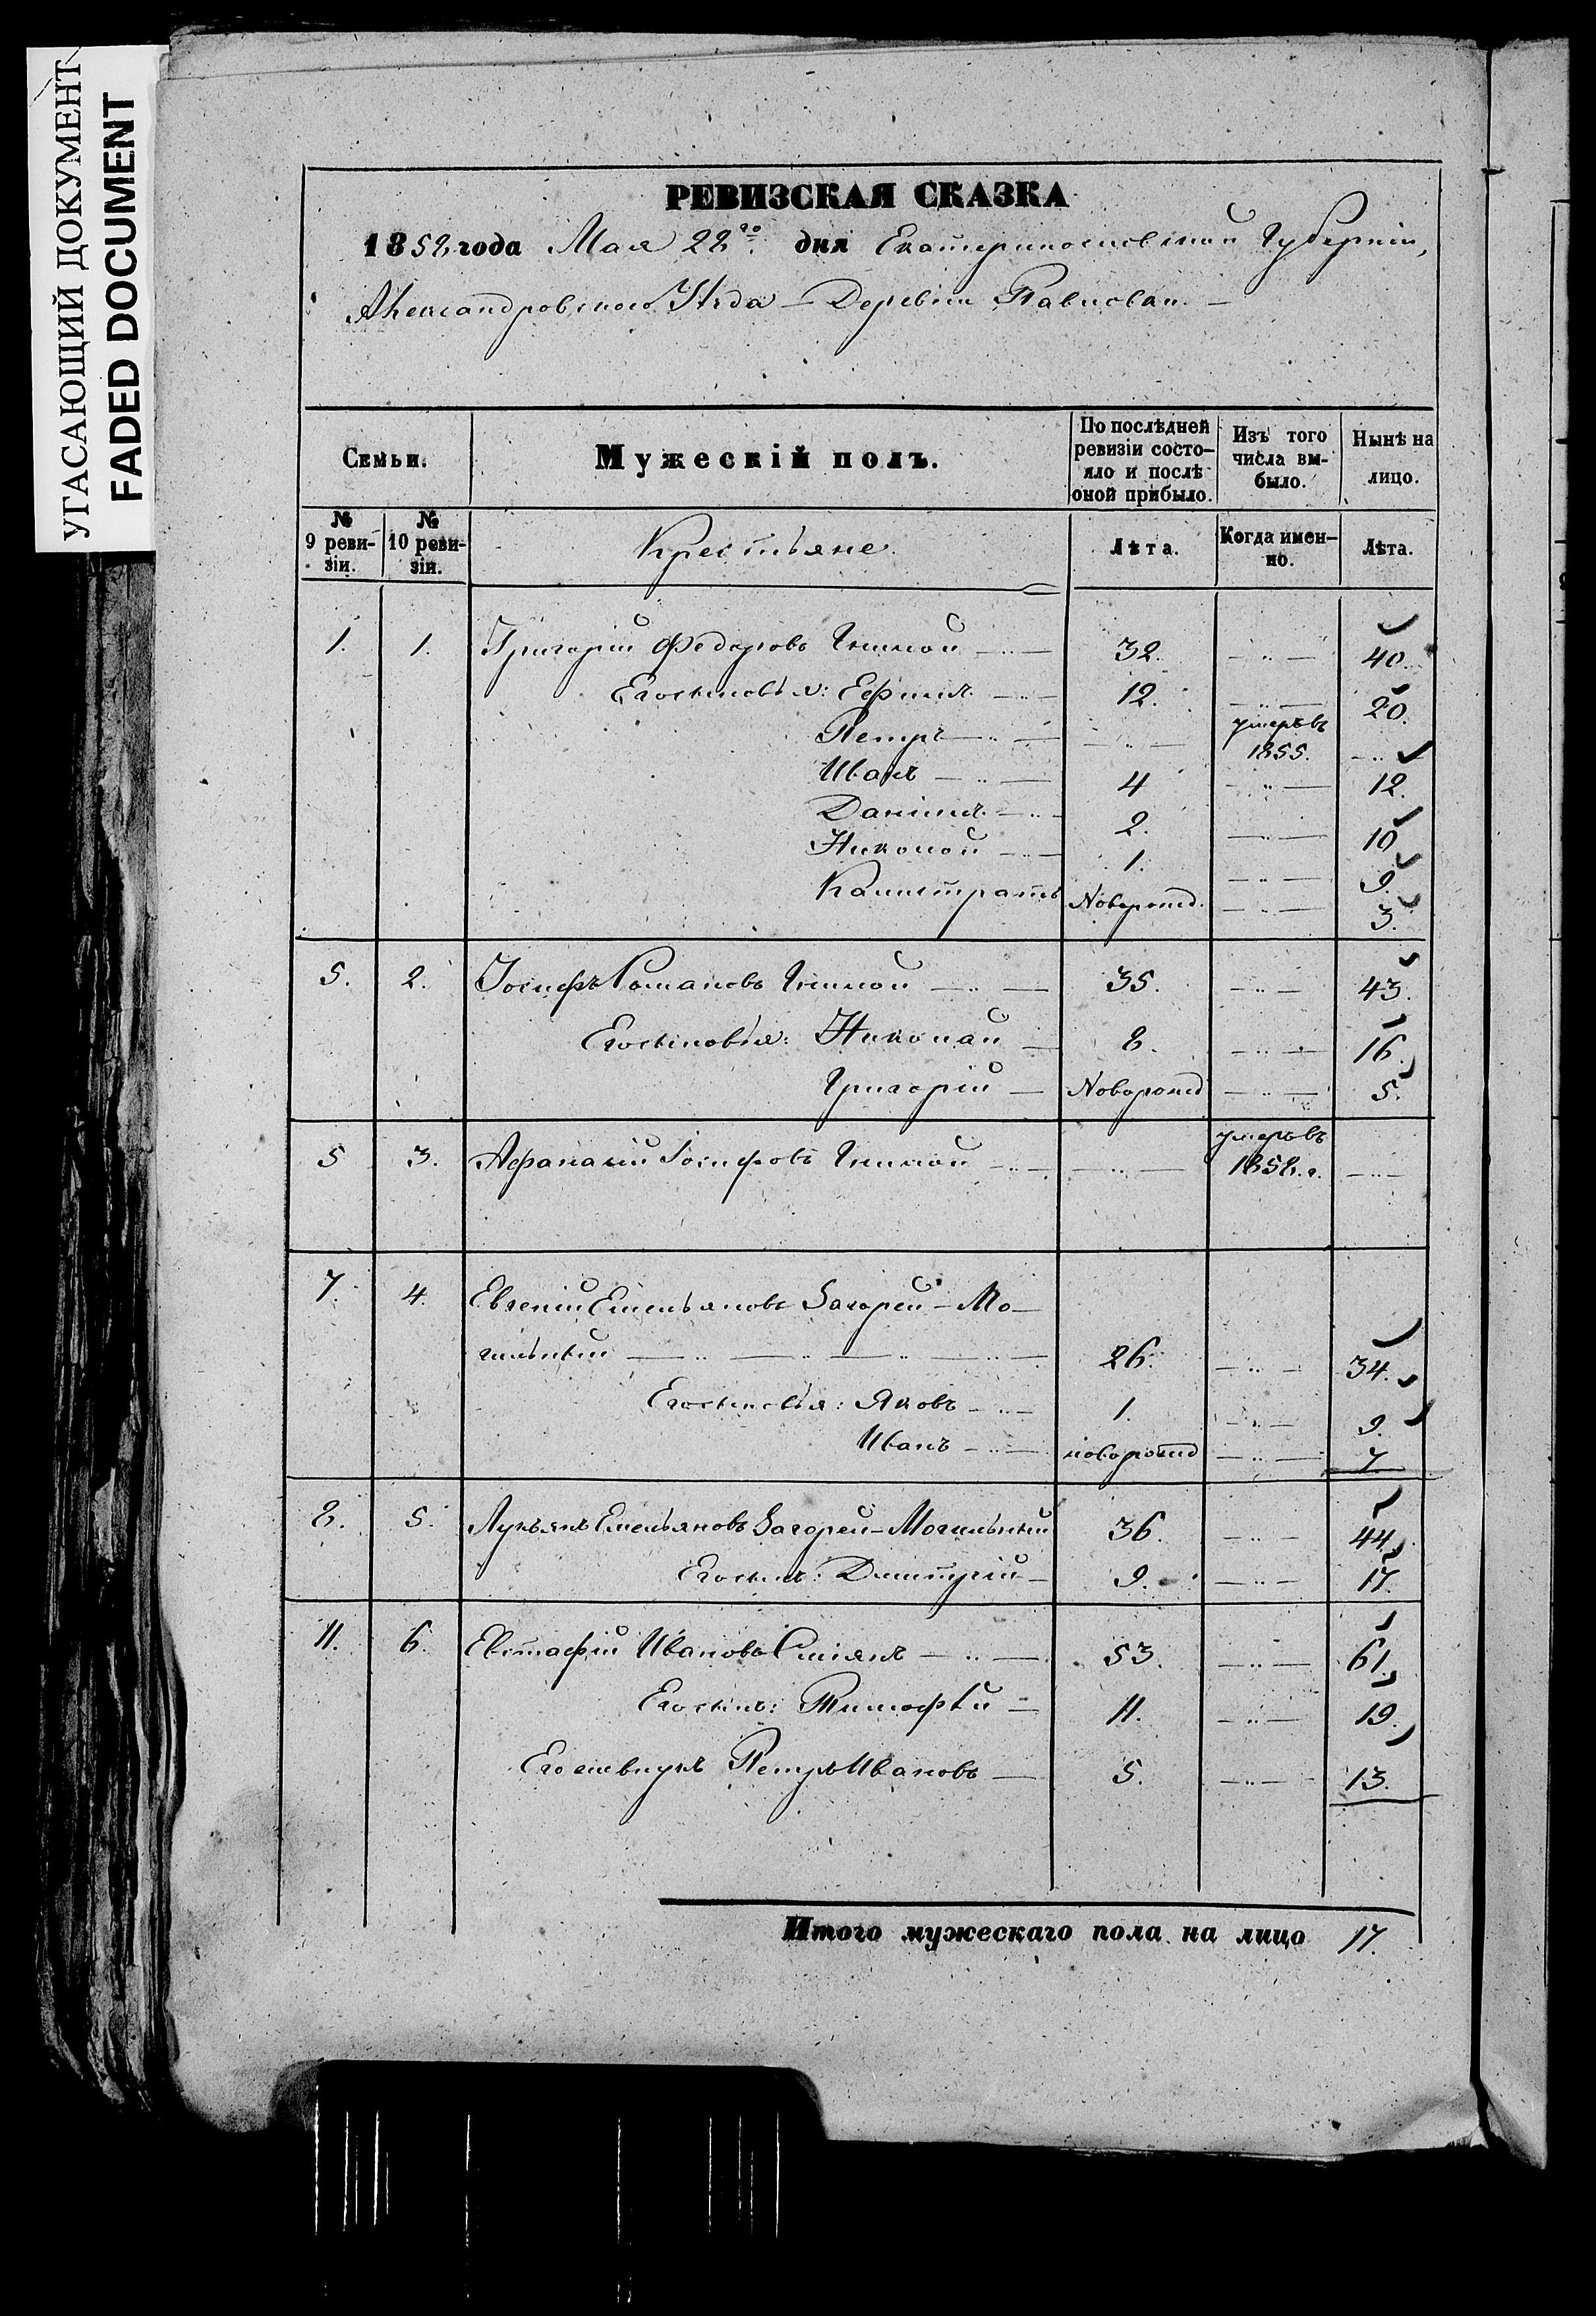 УГАСАЮЩИЙ ДОКУМЕНТ
FADED DOCUMENT
РЕВИЗСКАЯ СКАЗКА
1858 года Мая 22го дня Екатеринославской Губерніи,
Александровского Уѣзда — Деревни Павловки. —
Семьи.
Мужескій полъ.
По послѣдней ревизіи состояло и послѣ оной прибыло.
Изъ того числа выбыло.
Нынѣ на лицо.
№ 9 ревизіи.
№ 10 ревизіи.
Крестьяне.
Лѣта.
Когда именно.
Лѣта.
1. 1. Григорій Федоровъ 32. 40.
Его сыновья: Ефимъ 12. 20.
Петръ умеръ въ 1855.
Иванъ 4 12.
Даніилъ 2. 10
Николай 1. 9.
КалистратъНоворожд. 3.
5. 2. Іосифъ Романовъ 35. 43.
Его сыновья: Николай 8. 16.
Григорій Новорожд 5.
5 3. Афанасій Іосифовъ умеръ въ 1858. г.
7. 4. Евгеній Емельяновъ Загорей-Мо-
гильный 26. 34.
Его сыновья: Яковъ 1. 9.
Иванъ новорожд 7.
8. 5. Лукьянъ Емельяновъ Загорей-Могильный 36. 44.
Его сынъ: Дмитрій 9. 17.
11. 6. Евстафій Ивановъ 53. 61.
Его сынъ: Тимофѣй 11. 19.
Его внукъ Петръ Ивановъ 5. 13.
Итого мужескаго пола на лицо 17.